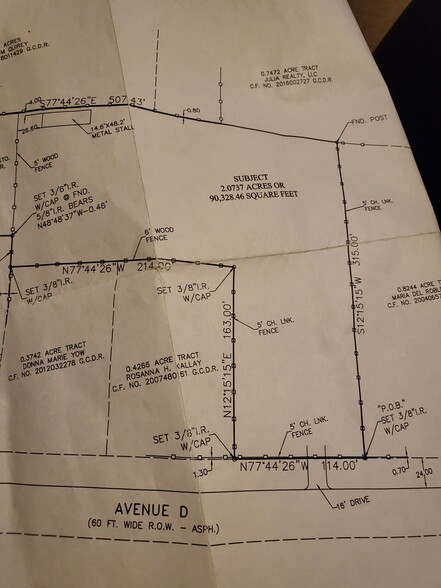 ACRES
M QUIREY
8011429 G.C.D.R.
S77°44'26"E 507.43'
4.00
0.80
26.60
14.6'X48.2'
METAL STALL
0.7472 ACRE TRACT
JULIA REALTY, LLC
C.F. NO. 2016002727 G.C.D.R.
FND. POST
5' WOOD
FENCE
SUBJECT
2.0737 ACRES OR
90,328.46 SQUARE FEET
SET 3/8"I.R.
W/CAP @ FND.
5/8"I.R. BEARS
N48°48'37"W-0.46'
5' CH. LNK.
FENCE
6' WOOD
FENCE
N77°44'26"W 214.00'
SET 3/8"I.R.
W/CAP
SET 3/8"I.R.
W/CAP
S12°15'15"W 315.00'
0.8244 ACRE T
MARIA DEL ROBL
C.F. NO. 20040657
5' CH. LNK.
FENCE
N12°15'15"E 163.00'
0.3742 ACRE TRACT
DONNA MARIE YOW
C.F. NO. 2012032278 G.C.D.R.
0.4266 ACRE TRACT
ROSANNA H. KALLAY
C.F. NO. 2007480161 G.C.D.R.
"P.O.B."
SET 3/8"I.R.
W/CAP
5' CH. LNK.
FENCE
SET 3/8"I.R.
W/CAP
1.30
N77°44'26"W 114.00'
0.70
24.00
16' DRIVE
AVENUE D
(60 FT. WIDE R.O.W. - ASPH.)